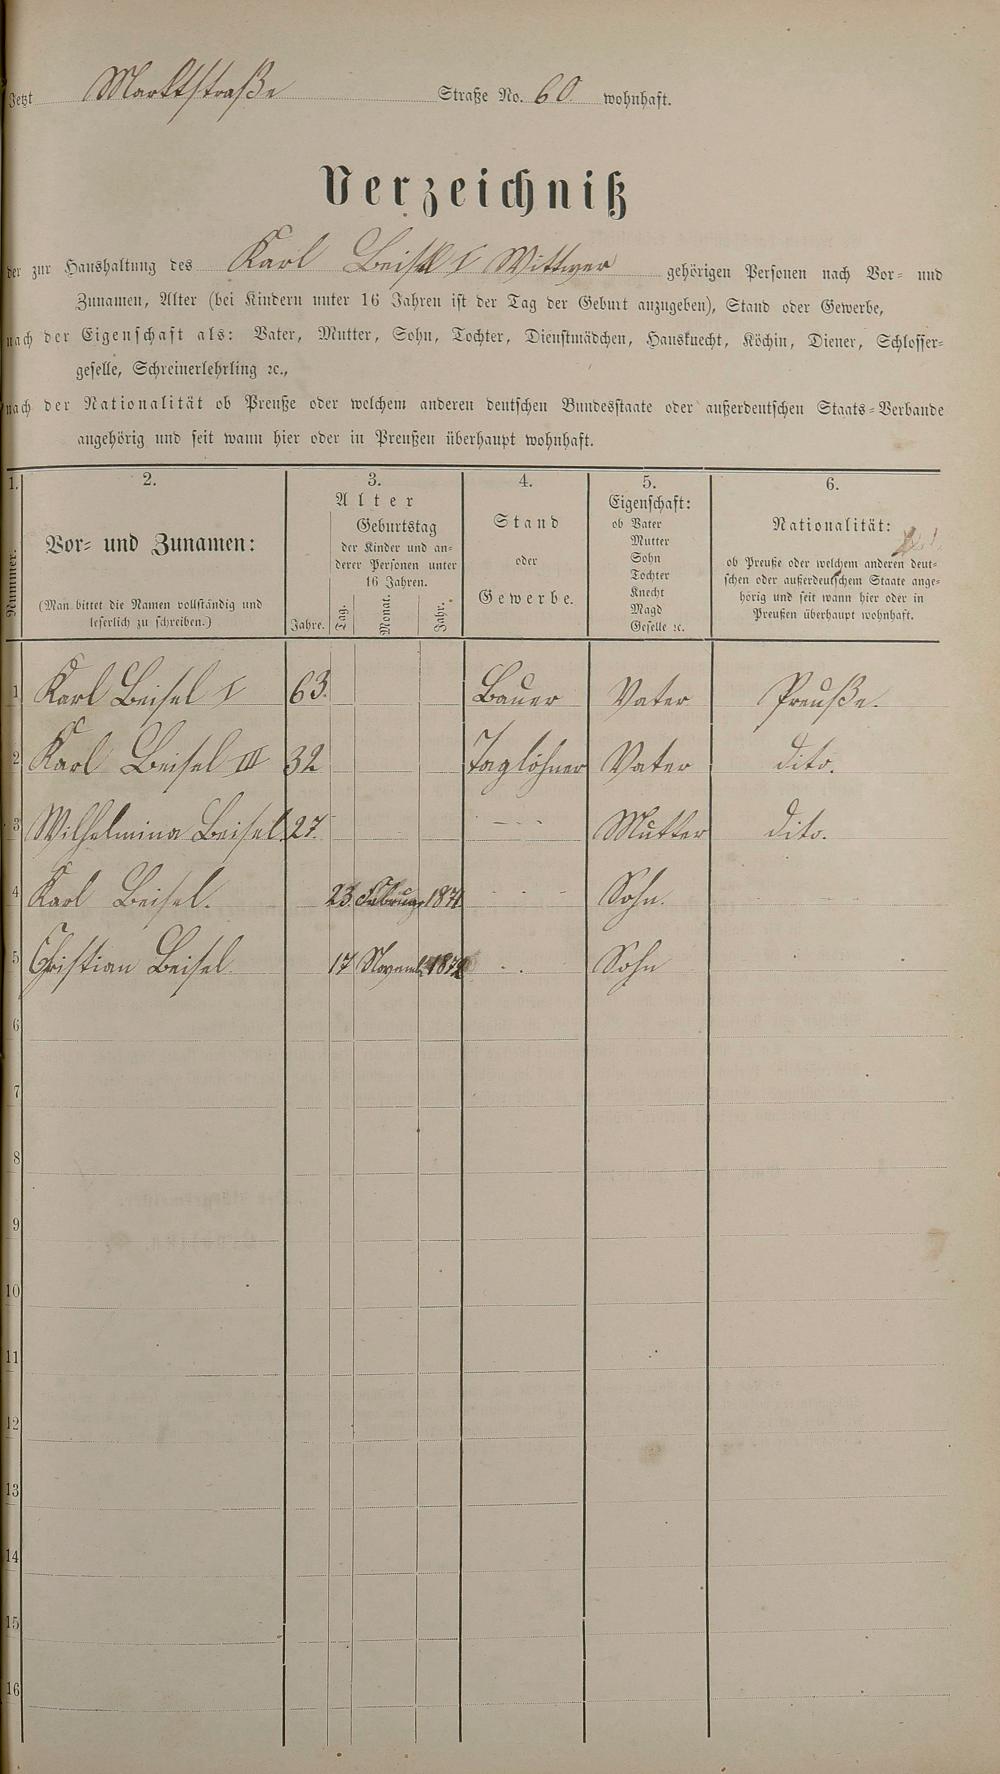 Jetzt Marktstraße Straße No. 60. wohnhaft.
Verzeichniß
der zur Haushaltung des Karl Beisel I Wittwer gehörigen Personen nach Vor- und
Zunamen, Alter (bei Kindern unter 16 Jahren ist der Tag der Geburt anzugeben), Stand oder Gewerbe,
nach der Eigenschaft als: Vater, Mutter, Sohn, Tochter, Dienstmädchen, Hausknecht, Köchin, Diener, Schlosser-
geselle, Schreinerlehrling ꝛc.,
nach der Nationalität ob Preuße oder welchem anderen deutschen Bundesstaate oder außerdeutschen Staats-Verbande
angehörig und seit wann hier oder in Preußen überhaupt wohnhaft.
1. 2. 3. 4. 5. 6.
Nummer.
Vor- und Zunamen:
(Man bittet die Namen vollständig und
leserlich zu schreiben.)
Alter
Jahre.
Geburtstag
der Kinder und an-
derer Personen unter
16 Jahren.
Tag. Monat. Jahr.
Stand
oder
Gewerbe.
Eigenschaft:
ob Vater
Mutter
Sohn
Tochter
Knecht
Magd
Geselle ꝛc.
Nationalität:
ob Preuße oder welchem anderen deut-
schen oder außerdeutschem Staate ange-
hörig und seit wann hier oder in
Preußen überhaupt wohnhaft.
1 Karl Beisel I 63. Bauer Vater Preuße.
2 Karl Beisel III 32 Taglöhner Vater dito.
3 Wilhelmina Beisel 27. Mutter dito.
4 Karl Beisel. 23. Februar 1871 Sohn.
5 Christian Beisel 17 Novemb. Sohn
6
7
8
9
10
11
12
13
14
15
16